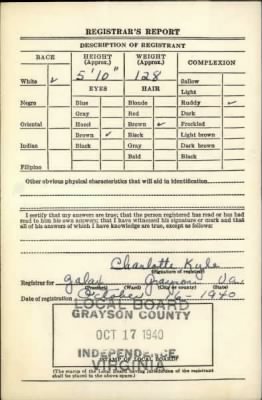 REGISTRAR'S REPORT
DESCRIPTION OF REGISTRANT
RACE HEIGHT (Approx.) WEIGHT (Approx.) COMPLEXION
White ✓ 5'10" 128 Sallow
Light
EYES HAIR
Negro Blue Blonde Ruddy ✓
Gray Red Dark
Oriental Hazel Brown ✓ Freckled
Brown ✓ Black Light brown
Indian Black Gray Dark brown
Bald Black
Filipino
Other obvious physical characteristics that will aid in identification
I certify that my answers are true; that the person registered has read or has had
read to him his own answers; that I have witnessed his signature or mark and that
all of his answers of which I have knowledge are true, except as follows:
Charlotte Kyle
(Signature of registrar)
Registrar for Galax Grayson Va.
(Precinct) (Ward) (City or county) (State)
Date of registration October 16 1940
LOCAL BOARD
GRAYSON COUNTY
OCT 17 1940
INDEPENDENCE
VIRGINIA
(STAMP OF LOCAL BOARD)
(The stamp of the Local Board of the registrant
shall be placed in the above space.)